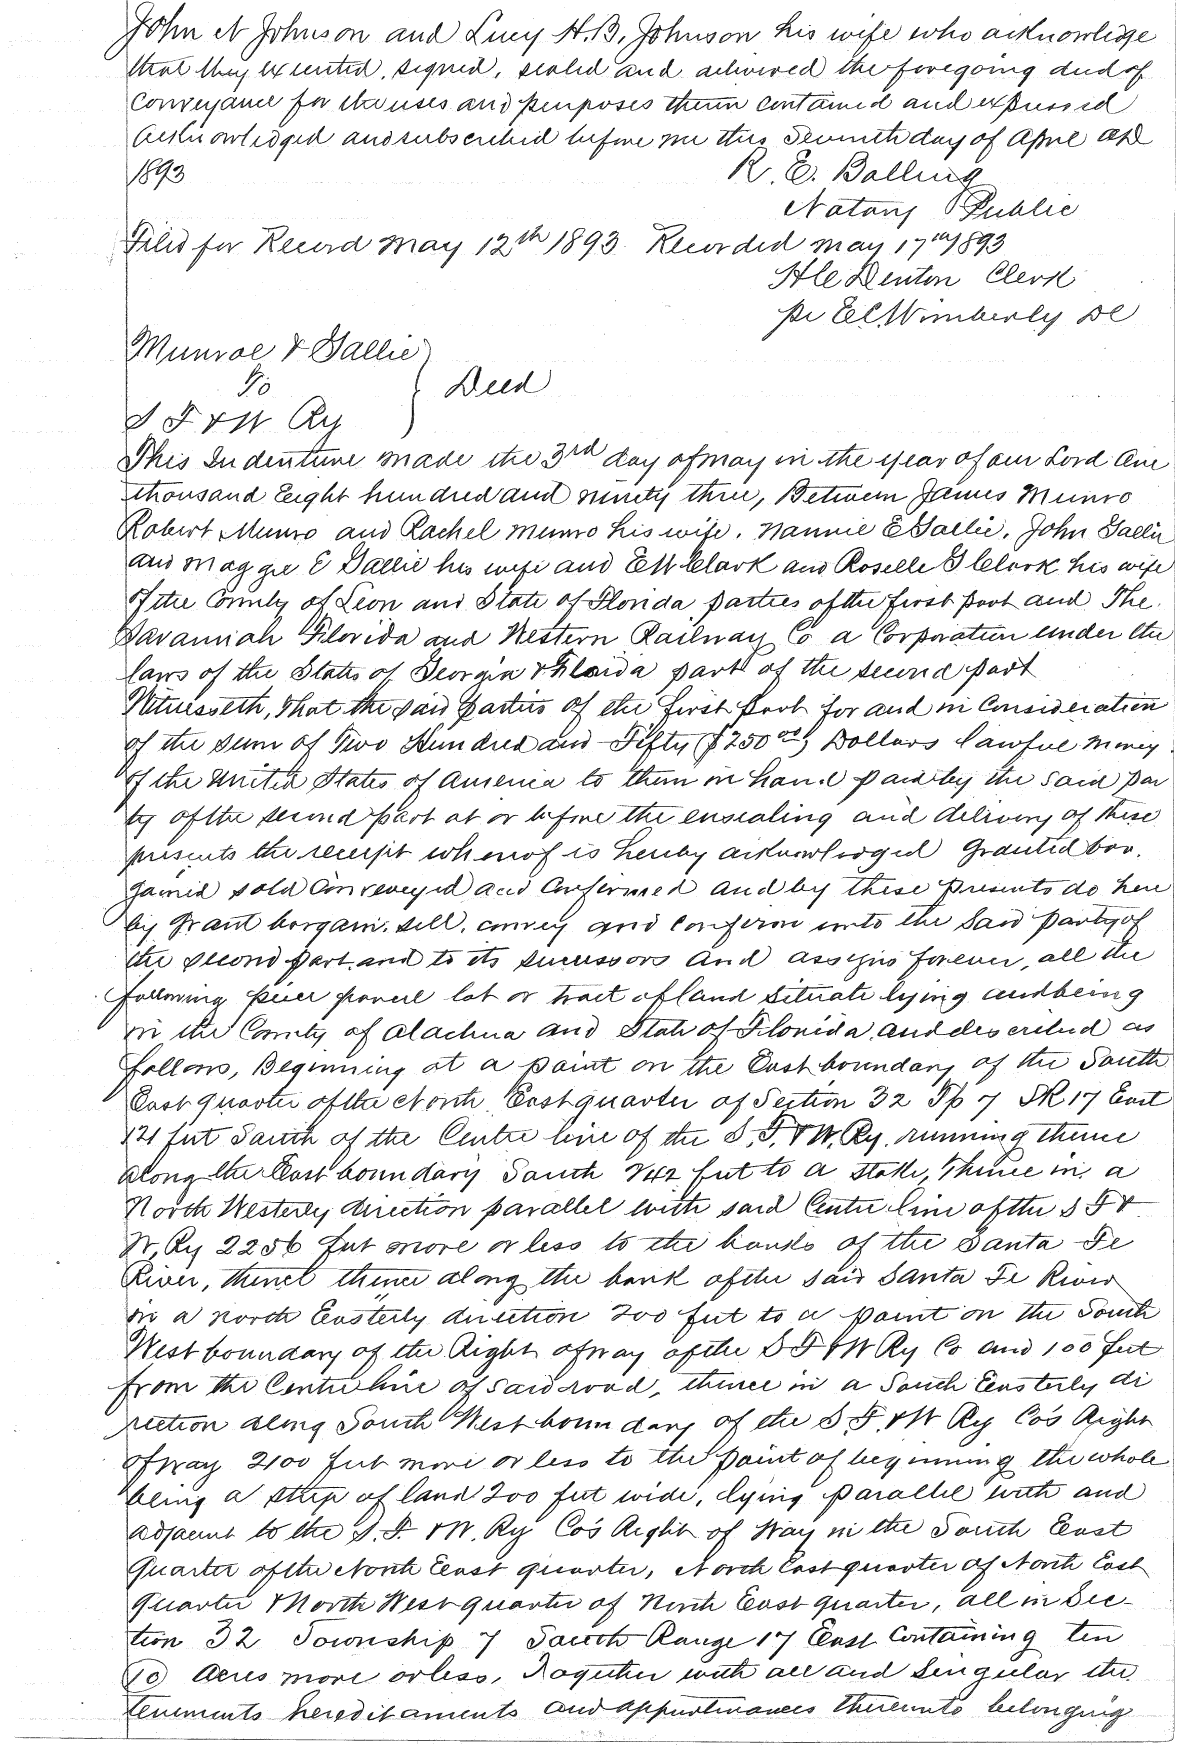 John A Johnson and Lucy H. B. Johnson his wife who acknowledge
that they executed, signed, sealed and delivered the foregoing deed of
Conveyance for the uses and purposes therin contained and expressed
Acknowledged and subscribed before me this Seventh day of April AD
1893 R. E. Bolling
Notary Public
Filed for Record May 12th 1893 Recorded May 17th 1893
H C Denton Clerk
pr E C Wimberly DC
Munroe & Gallie
To } Deed
S F & W Ry
This Indenture made the 3rd day of May in the year of our Lord One
thousand Eight hundred and ninety three, Between James Munro
Robert Munro and Rachel Munro his wife, Nannie E Gallie, John Gallie
and Maggie E Gallie his wife and E W Clark and Roselle G Clark his wife
of the County of Leon and State of Florida parties of the first part and The
Savannah Florida and Western Railway Co a Corporation under the
laws of the States of Georgia & Florida part of the second part
Witnesseth, That the said parties of the first part for and in Consideration
of the sum of Two Hundred and Fifty ($250 00) Dollars lawful money
of the United States of America to them in hand paid by the said par
ty of the second part at or before the ensealing and delivery of these
presents the receipt whereof is hereby acknowledged Granted bar.
gained sold Conveyed and Confirmed and by these presents do here
by Grant bargain, sell, convey and confirm unto the said party of
the second part, and to its successors and assigns forever, all the
following piece parcel lot or tract of land situate lying and being
in the County of Alachua and State of Florida and described as
follows, Beginning at a point on the East boundary of the South
East quarter of the North East quarter of Section 32 Tp 7 S R 17 East
121 feet South of the Centre line of the S. F. & W. Ry. running thence
along the East boundary South 242 feet to a stake, thence in a
North Westerly direction parallel with said Centre line of the S F &
W. Ry 2256 feet more or less to the banks of the Santa Fe
River, thence thence along the bank of the said Santa Fe River
in a north Easterly direction 200 feet to a point on the South
West boundary of the Right of way of the S F & W Ry Co and 100 feet
from the Centre line of said road, thence in a South Easterly di
rection along South West boundary of the S F. & W Ry Co's Right
of way 2100 feet more or less to the point of beginning the whole
being a strip of land 200 feet wide, lying parallel with and
adjacent to the S. F. & W. Ry Co's Right of Way in the South East
Quarter of the North East quarter, North East quarter of North East
Quarter & North West quarter of North East quarter, all in Sec-
tion 32 Township 7 South Range 17 East Containing ten
(10) Acres more or less, Together with all and singular the
tenements hereditaments and appurtinances thereunto belonging